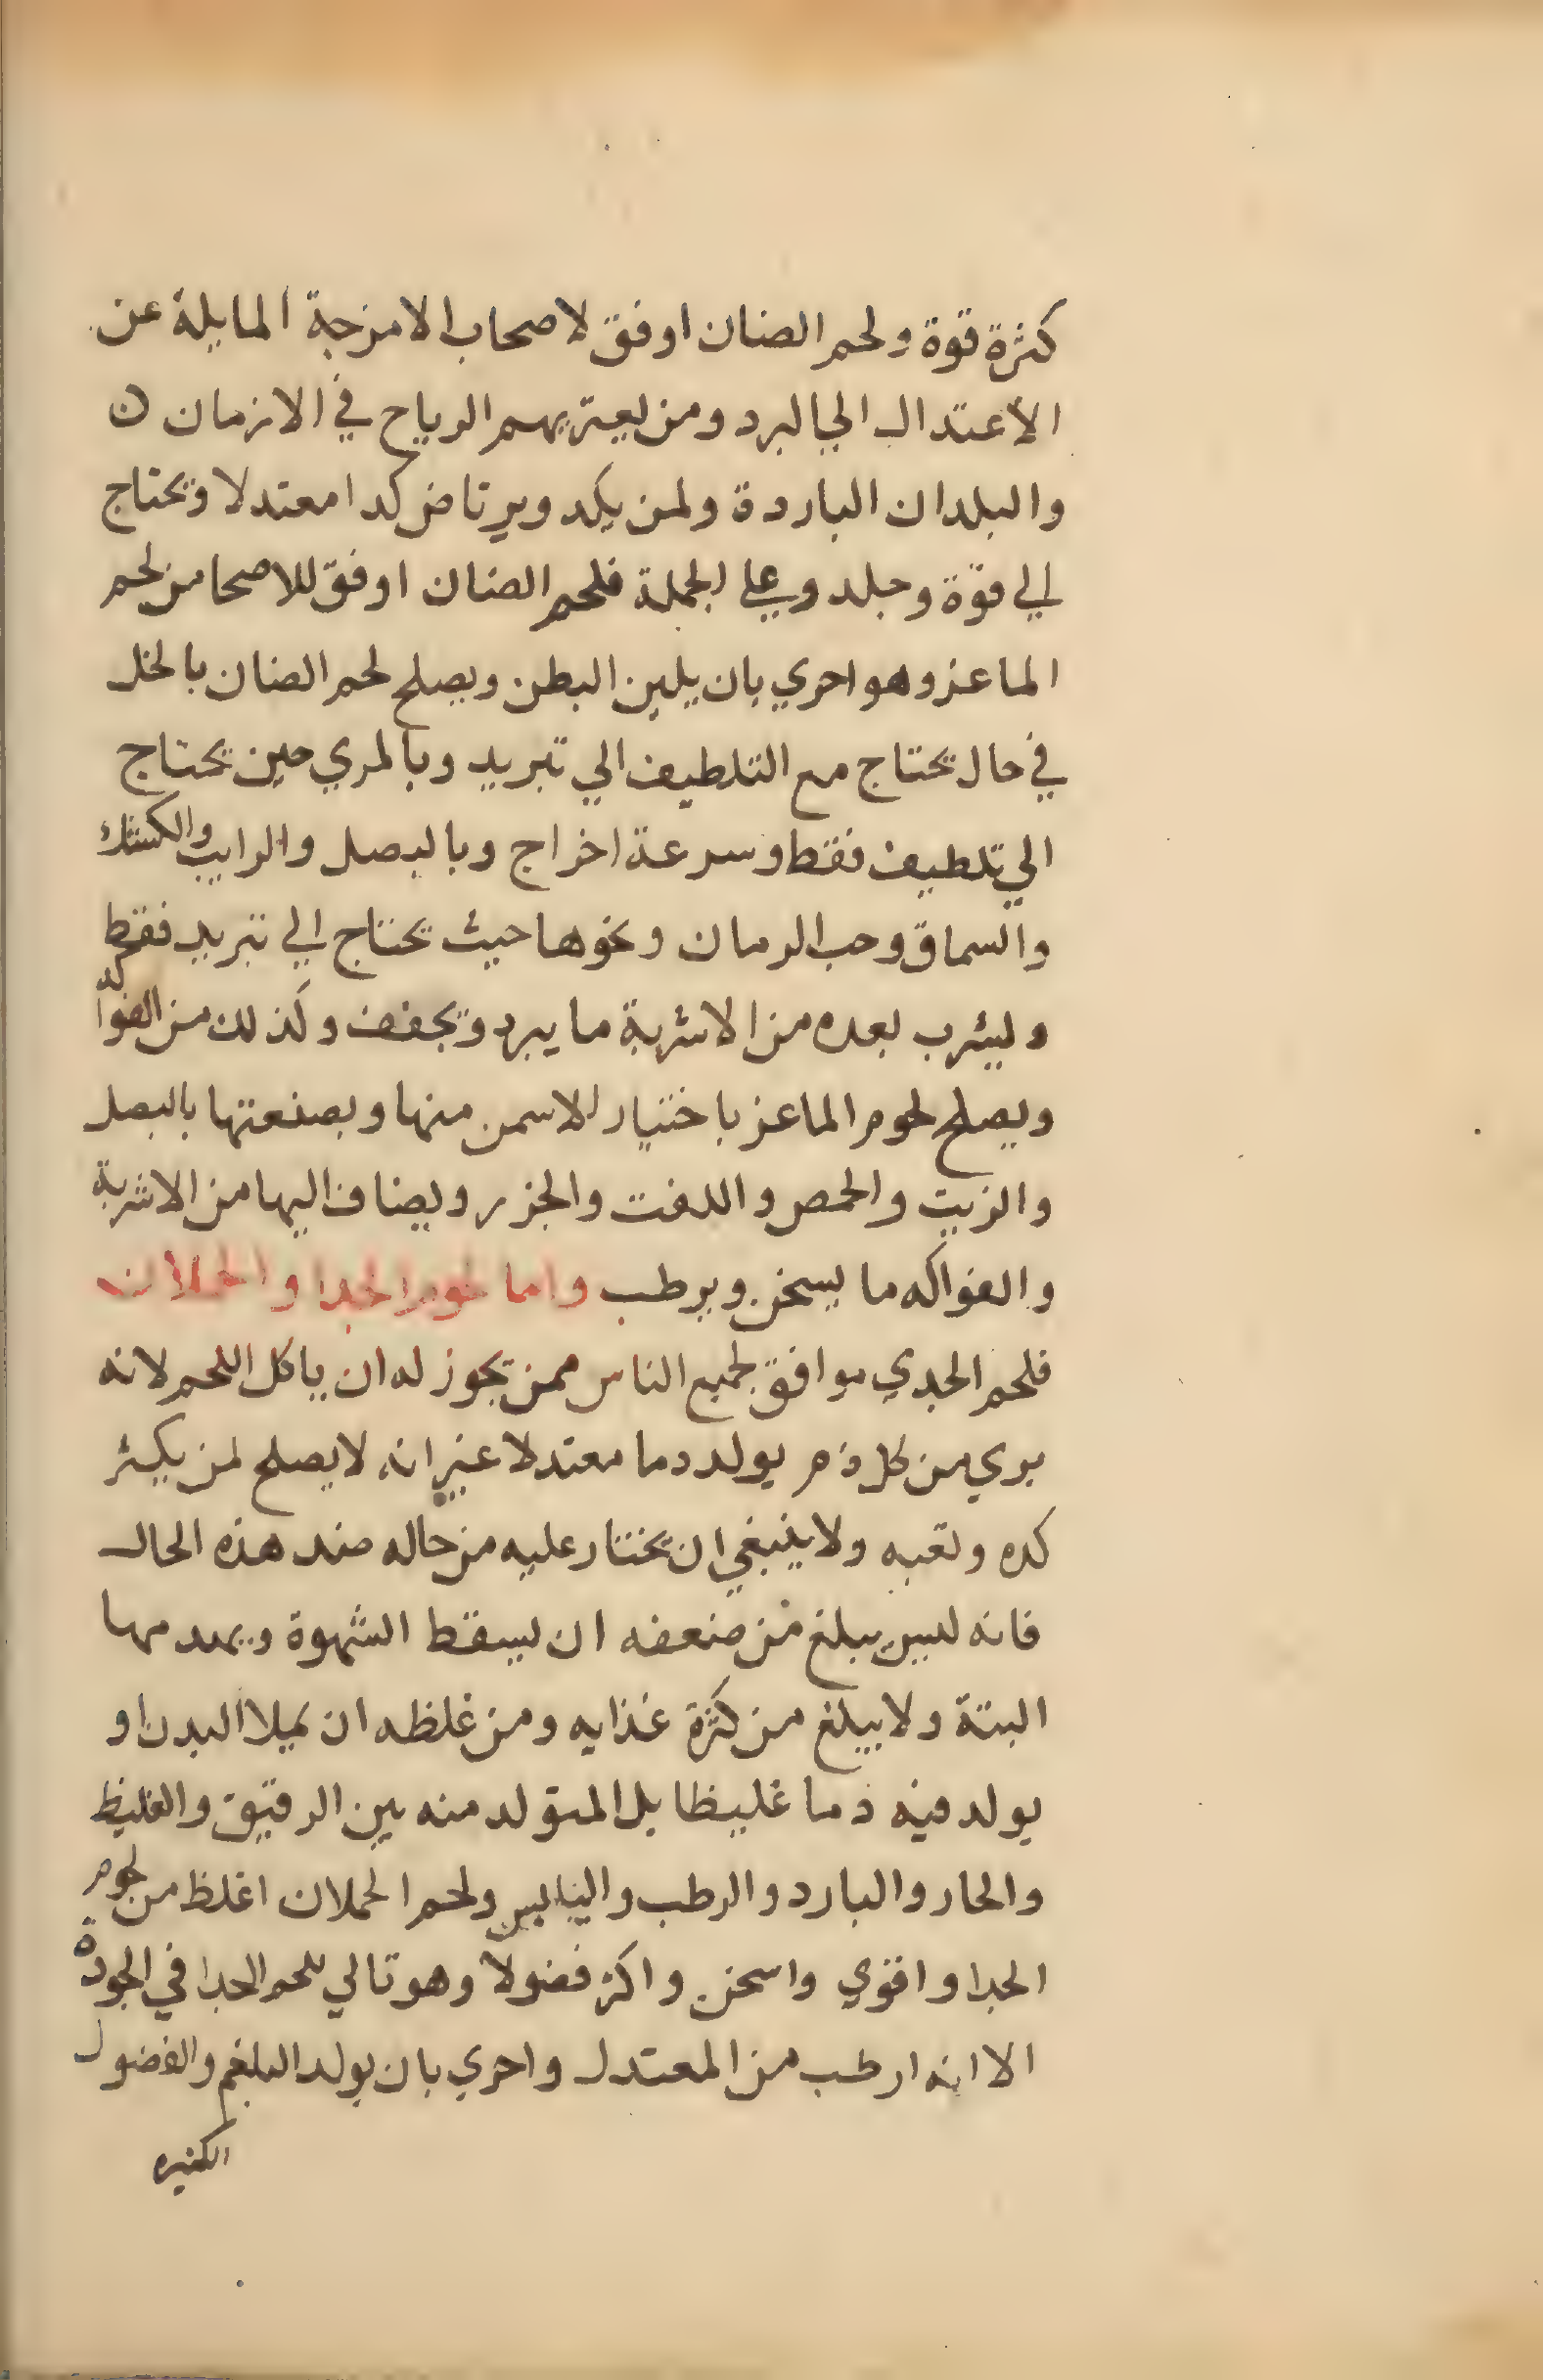 كثرة قوة ولحم الضان اوفق لاصحاب الامزجة المايلة عن
الاعتدال الي البرد ومن يعتريهم الرياح في الازمان ن
والبلدان الباردة ولمن يكد ويرتاض كدا معتدلا ويحتاج
الي قوة وجلد وعلي الجملة فلحم الضان اوفق للاصحا من لحم
الماعز وهو احري بان يلين البطن ويصلح لحم الضان بالخل
في حال يحتاج مع التلطيف الي تبريد وبالمري حين يحتاج
الي تلطيف فقط وسرعة اخراج وبالبصل والرايب والكشك
والسماق وحب الرمان ونحوها حيث يحتاج الي تبريد فقط
وليشرب بعده من الاشربة ما يبرد ويجفف وكذلك من الفواكه
ويصلح لحوم الماعز باختيار الاسمن منها وبصنعتها بالبصل
والزيت والحمص واللفت والجزر ويضاف اليها من الاشربة
والفواكه ما يسخن ويرطب واما لحوم الجدا والحملان
فلحم الجدي موافق لجميع الناس ممن يجوز له ان ياكل اللحم لانه
بري من كل ذم يولد دما معتدلا غير انه لا يصلح لمن يكثر
كده وتعبه ولا ينبغي ان يختار عليه من حاله ضد هذه الحال
فانه ليس يبلغ من ضعفه ان يسقط الشهوة ويهدمها
البتة ولا يبلغ من كثرة غذايه ومن غلظه ان يملا البدن او
يولد فيه دما غليظا بل المتولد منه بين الرقيق والغليظ
والحار والبارد والرطب واليابس ولحم الحملان اغلظ من لحوم
الجدا واقوي واسخن واكثر فضولا وهو تالي للحم الجدا في الجودة
الا انه ارطب من المعتدل واحري بان يولد البلغم والفضول
الكثيره